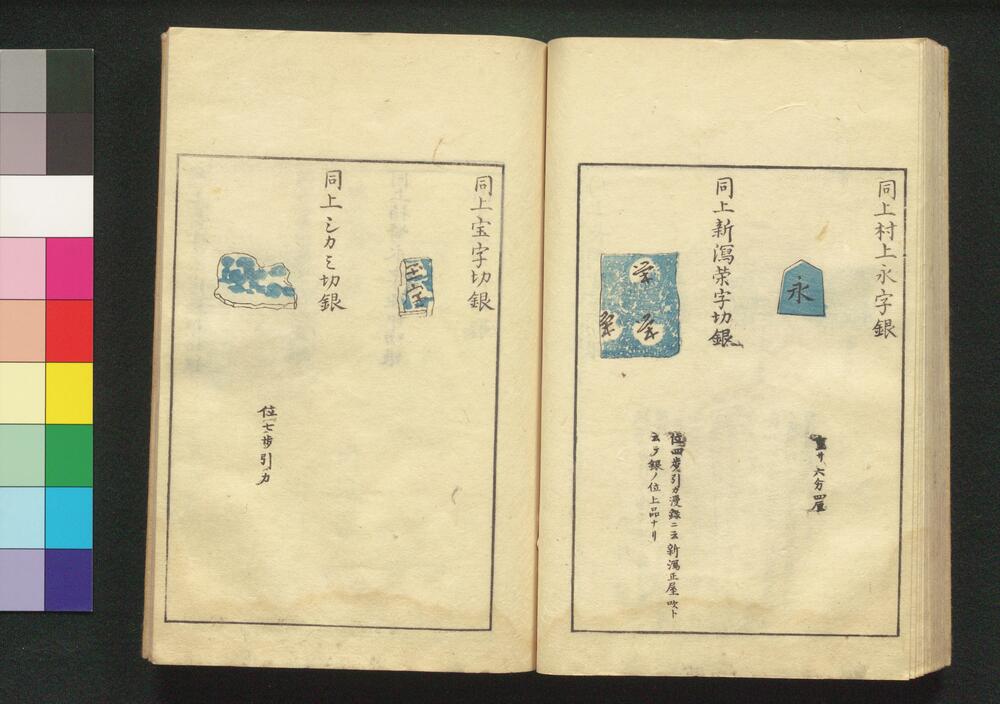 同上村上永字銀
永
重サ六分四厘
同上新瀉荣字切銀
栄
栄 栄
位四歩引カ漫録ニ云新瀉正屋吹ト
云フ銀ノ位上品ナリ
同上宝字切銀
宝
同上シカミ切銀
位七歩引カ